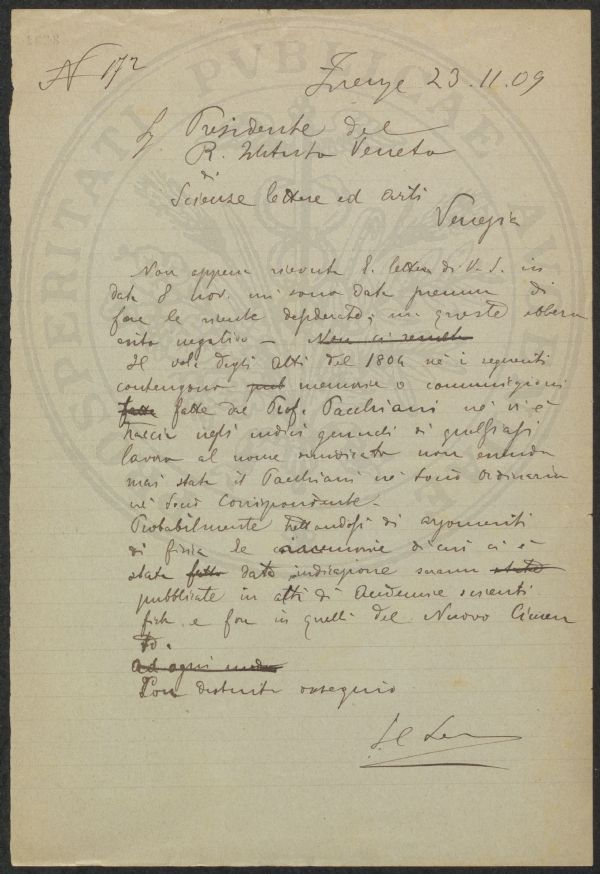 N 172
Firenze 23.11.09
Sig. Presidente del
R. Istituto Veneto
di
Scienze lettere ed arti
Venezia
Non appena ricevuta l. lettera di V. S. in
data 8 nov. mi sono data premura di
fare le ricerche desiderate; ma queste ebbero
esito negativo — Non ci risulta
Il vol. degli Atti del 1804 nè i seguenti
contengono pub memorie o comunicazioni
fatte fatte dal Prof. Pacchiani nè vi è
traccia negli indici generali di qualsiasi
lavoro al nome sunidicato non essendo
mai stato il Pacchiani nè Socio Ordinario
nè Socio Corrispondente —
Probabilmente trattandosi di argomenti
di fisica le memorie di cui ci è
stata fatto data indicazione saranno state
pubblicate in atti di Accademie scienti
fiche e fors in quelli del Nuovo Cimen
to.
Ad ogni modo
Con distinto ossequio
Il
PROSPERITATI PVBLICAE